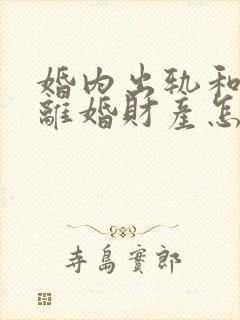 婚内出轨和
離婚財産怎
寺島實郎